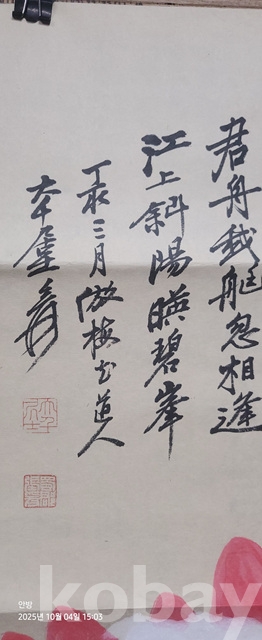 君舟我艇忽相逢
江上斜陽暎碧峯
丁亥三月倣梅花道人
大千 爰
kobay
안방
2025년 10월 04일 15:03